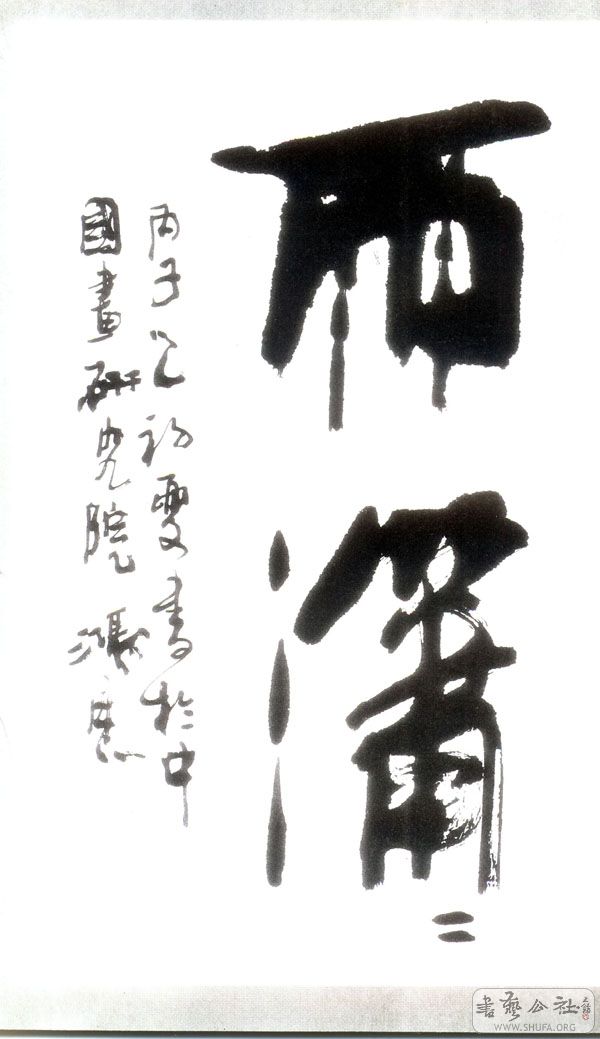 雨瀟〻
丙子之初夏書於中
國畫研究院
書藝公社
WWW.SHUFA.ORG